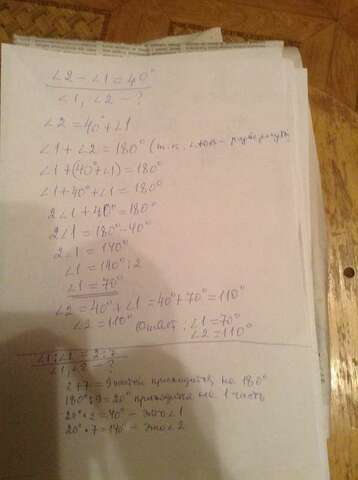 ∠2 - ∠1 = 40°
∠1, ∠2 - ?
∠2 = 40° + ∠1
∠1 + ∠2 = 180° (т.к. ∠AOB -
∠1 + (40° + ∠1) = 180°
∠1 + 40° + ∠1 = 180°
2∠1 + 40° = 180°
2∠1 = 180° - 40°
2∠1 = 140°
∠1 = 140° : 2
∠1 = 70°
∠2 = 40° + ∠1 = 40° + 70° = 110°
∠2 = 110° Ответ: ∠1 = 70°
∠2 = 110°
∠1 : ∠2 = 2 : 7
∠1, ∠2 - ?
2 + 7 = 9 частей приходится на 180°
180° : 9 = 20° приходится на 1 часть
20° • 2 = 40° - это ∠1
20° • 7 = 140° - это ∠2